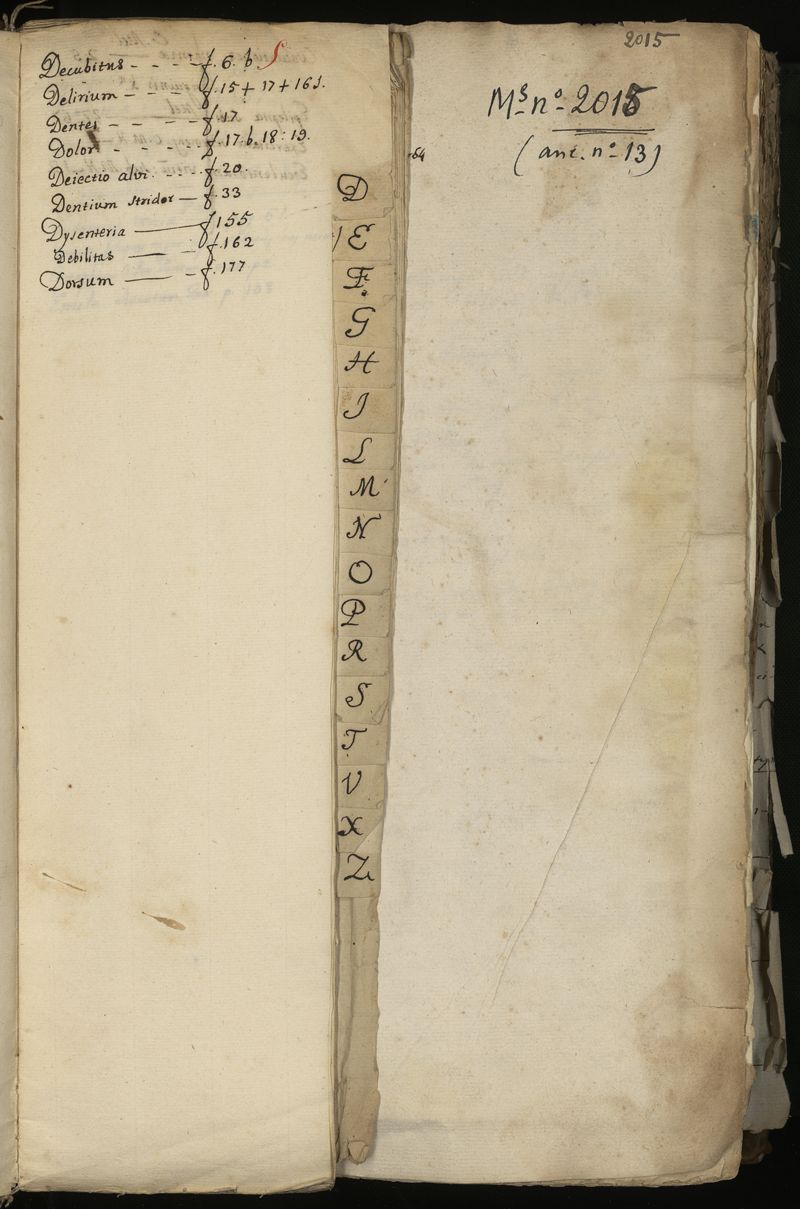 Decubitus - - - - f. 6. b. S
Delirium - - - - f. 15 + 17 + 161.
Dentes - - - - f. 17
Dolor - - - - f. 17. b. 18: 19.
Deiectio alvi - - - f. 20.
Dentium stridor — f. 33
Dysenteria — f 155
Debilitas — - f. 162
Dorsum — - f. 177
D
E
F.
G
H
I
L
M
N
O
P
R
S
T
V
X
Z
2015
Ms nº 2015
(ant. nº 13)